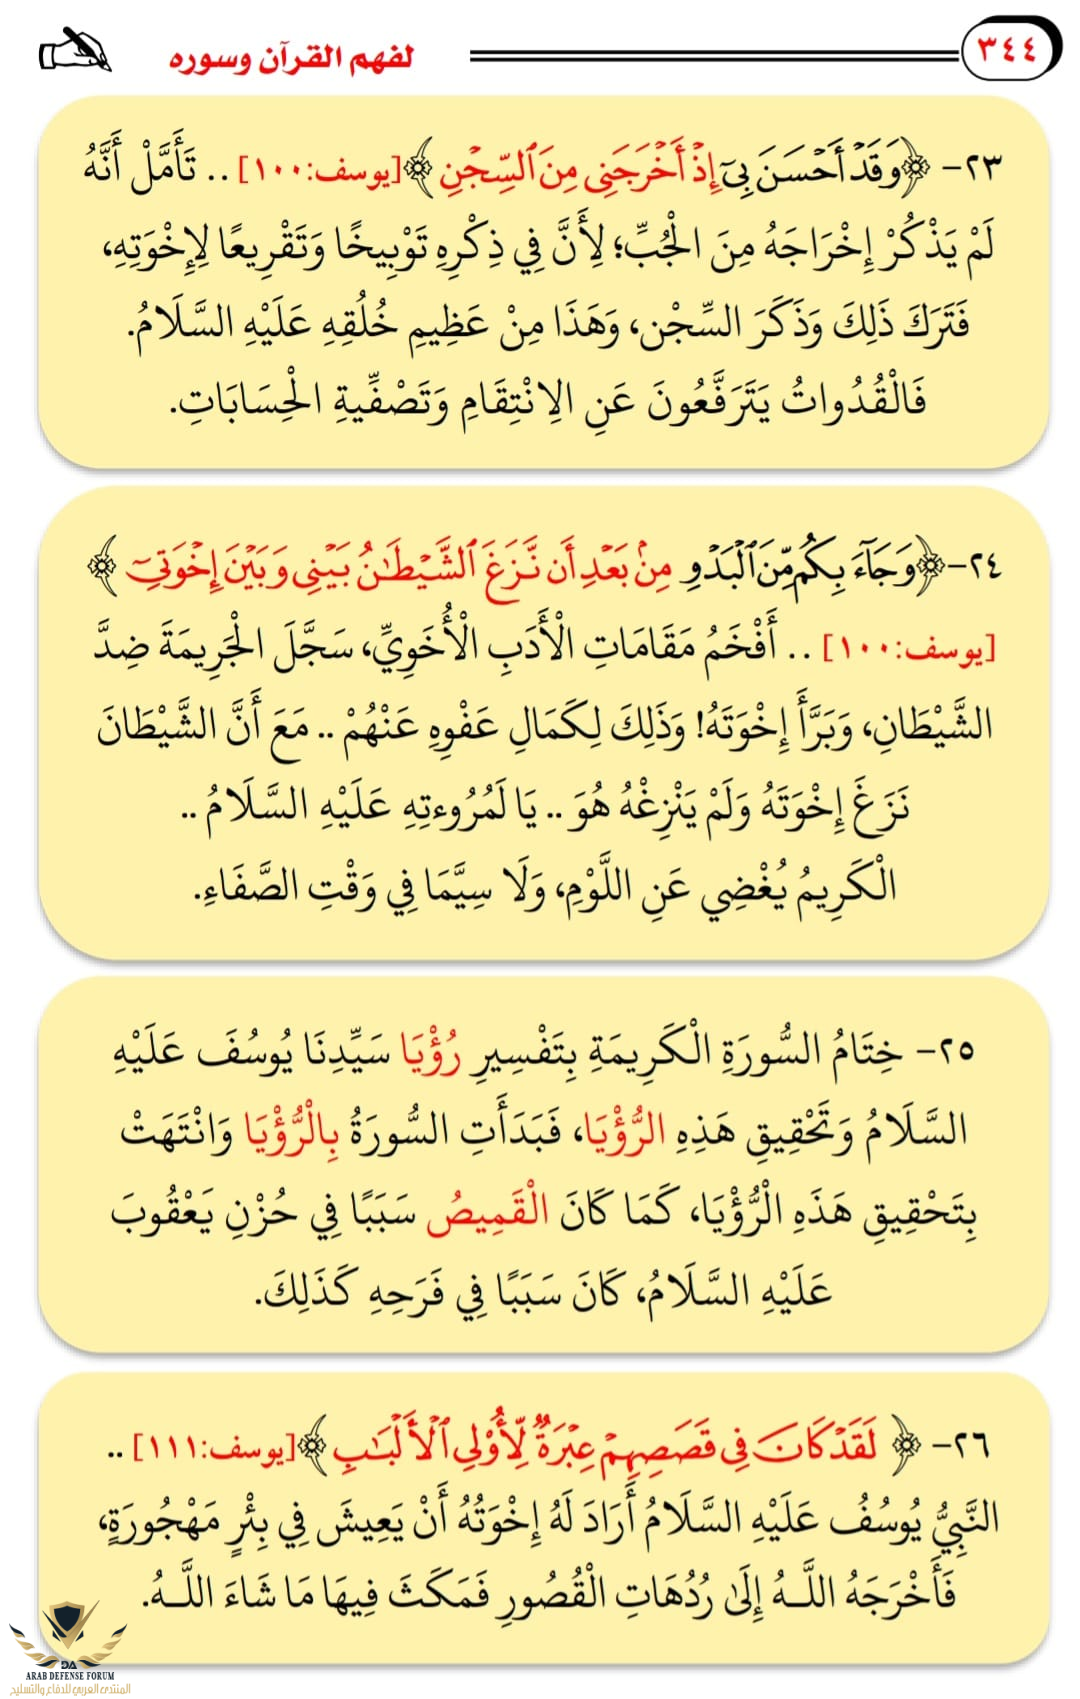 ٣٤٤
لفهم القرآن وسوره
٢٣- ﴿وَقَدْ أَحْسَنَ بِيٓ إِذْ أَخْرَجَنِي مِنَ ٱلسِّجْنِ﴾[يوسف:١٠٠] .. تَأَمَّلْ أَنَّهُ
لَمْ يَذْكُرْ إِخْرَاجَهُ مِنَ الْجُبِّ؛ لِأَنَّ فِي ذِكْرِهِ تَوْبِيخًا وَتَقْرِيعًا لِإِخْوَتِهِ،
فَتَرَكَ ذَلِكَ وَذَكَرَ السِّجْنِ، وَهَذَا مِنْ عَظِيمِ خُلُقِهِ عَلَيْهِ السَّلَامُ.
فَالْقُدُواتُ يَتَرَفَّعُونَ عَنِ الِانْتِقَامِ وَتَصْفِّيةِ الْحِسَابَاتِ.
٢٤-﴿وَجَآءَ بِكُم مِّنَ ٱلْبَدْوِ مِنۢ بَعْدِ أَن نَّزَغَ ٱلشَّيْطَٰنُ بَيْنِي وَبَيْنَ إِخْوَتِيٓ﴾
[يوسف:١٠٠] .. أَفْخَمُ مَقَامَاتِ الْأَدَبِ الْأُخَوِيِّ، سَجَّلَ الْجَرِيمَةَ ضِدَّ
الشَّيْطَانِ، وَبَرَّأَ إِخْوَتَهُ! وَذَلِكَ لِكَمَالِ عَفْوِهِ عَنْهُمْ .. مَعَ أَنَّ الشَّيْطَانَ
نَزَغَ إِخْوَتَهُ وَلَمْ يَنْزِغْهُ هُوَ .. يَا لَمُرُوءتِهِ عَلَيْهِ السَّلَامُ ..
الْكَرِيمُ يُغْضِي عَنِ اللَّوْمِ، وَلَا سِيَّمَا فِي وَقْتِ الصَّفَاءِ.
٢٥- خِتَامُ السُّورَةِ الْكَرِيمَةِ بِتَفْسِيرِ رُؤْيَا سَيِّدِنَا يُوسُفَ عَلَيْهِ
السَّلَامُ وَتَحْقِيقِ هَذِهِ الرُّؤْيَا، فَبَدَأَتِ السُّورَةُ بِالْرُّؤْيَا وَانْتَهَتْ
بِتَحْقِيقِ هَذَهِ الْرُّؤْيَا، كَمَا كَانَ الْقَمِيصُ سَبَبًا فِي حُزْنِ يَعْقُوبَ
عَلَيْهِ السَّلَامُ، كَانَ سَبَبًا فِي فَرَحِهِ كَذَلِكَ.
٢٦- ﴿ لَقَدْ كَانَ فِي قَصَصِهِمْ عِبْرَةٌ لِّأُوْلِي ٱلْأَلْبَٰبِ﴾[يوسف:١١١] ..
النَّبِيُّ يُوسُفُ عَلَيْهِ السَّلَامُ أَرَادَ لَهُ إِخْوَتُهُ أَنْ يَعِيشَ فِي بِئْرٍ مَهْجُورَةٍ،
فَأَخْرَجَهُ اللَّـهُ إِلَى رُدُهَاتِ الْقُصُورِ فَمَكَثَ فِيهَا مَا شَاءَ اللَّـهُ.
DA
ARAB DEFENSE FORUM
المنتدى العربي للدفاع والتسليح